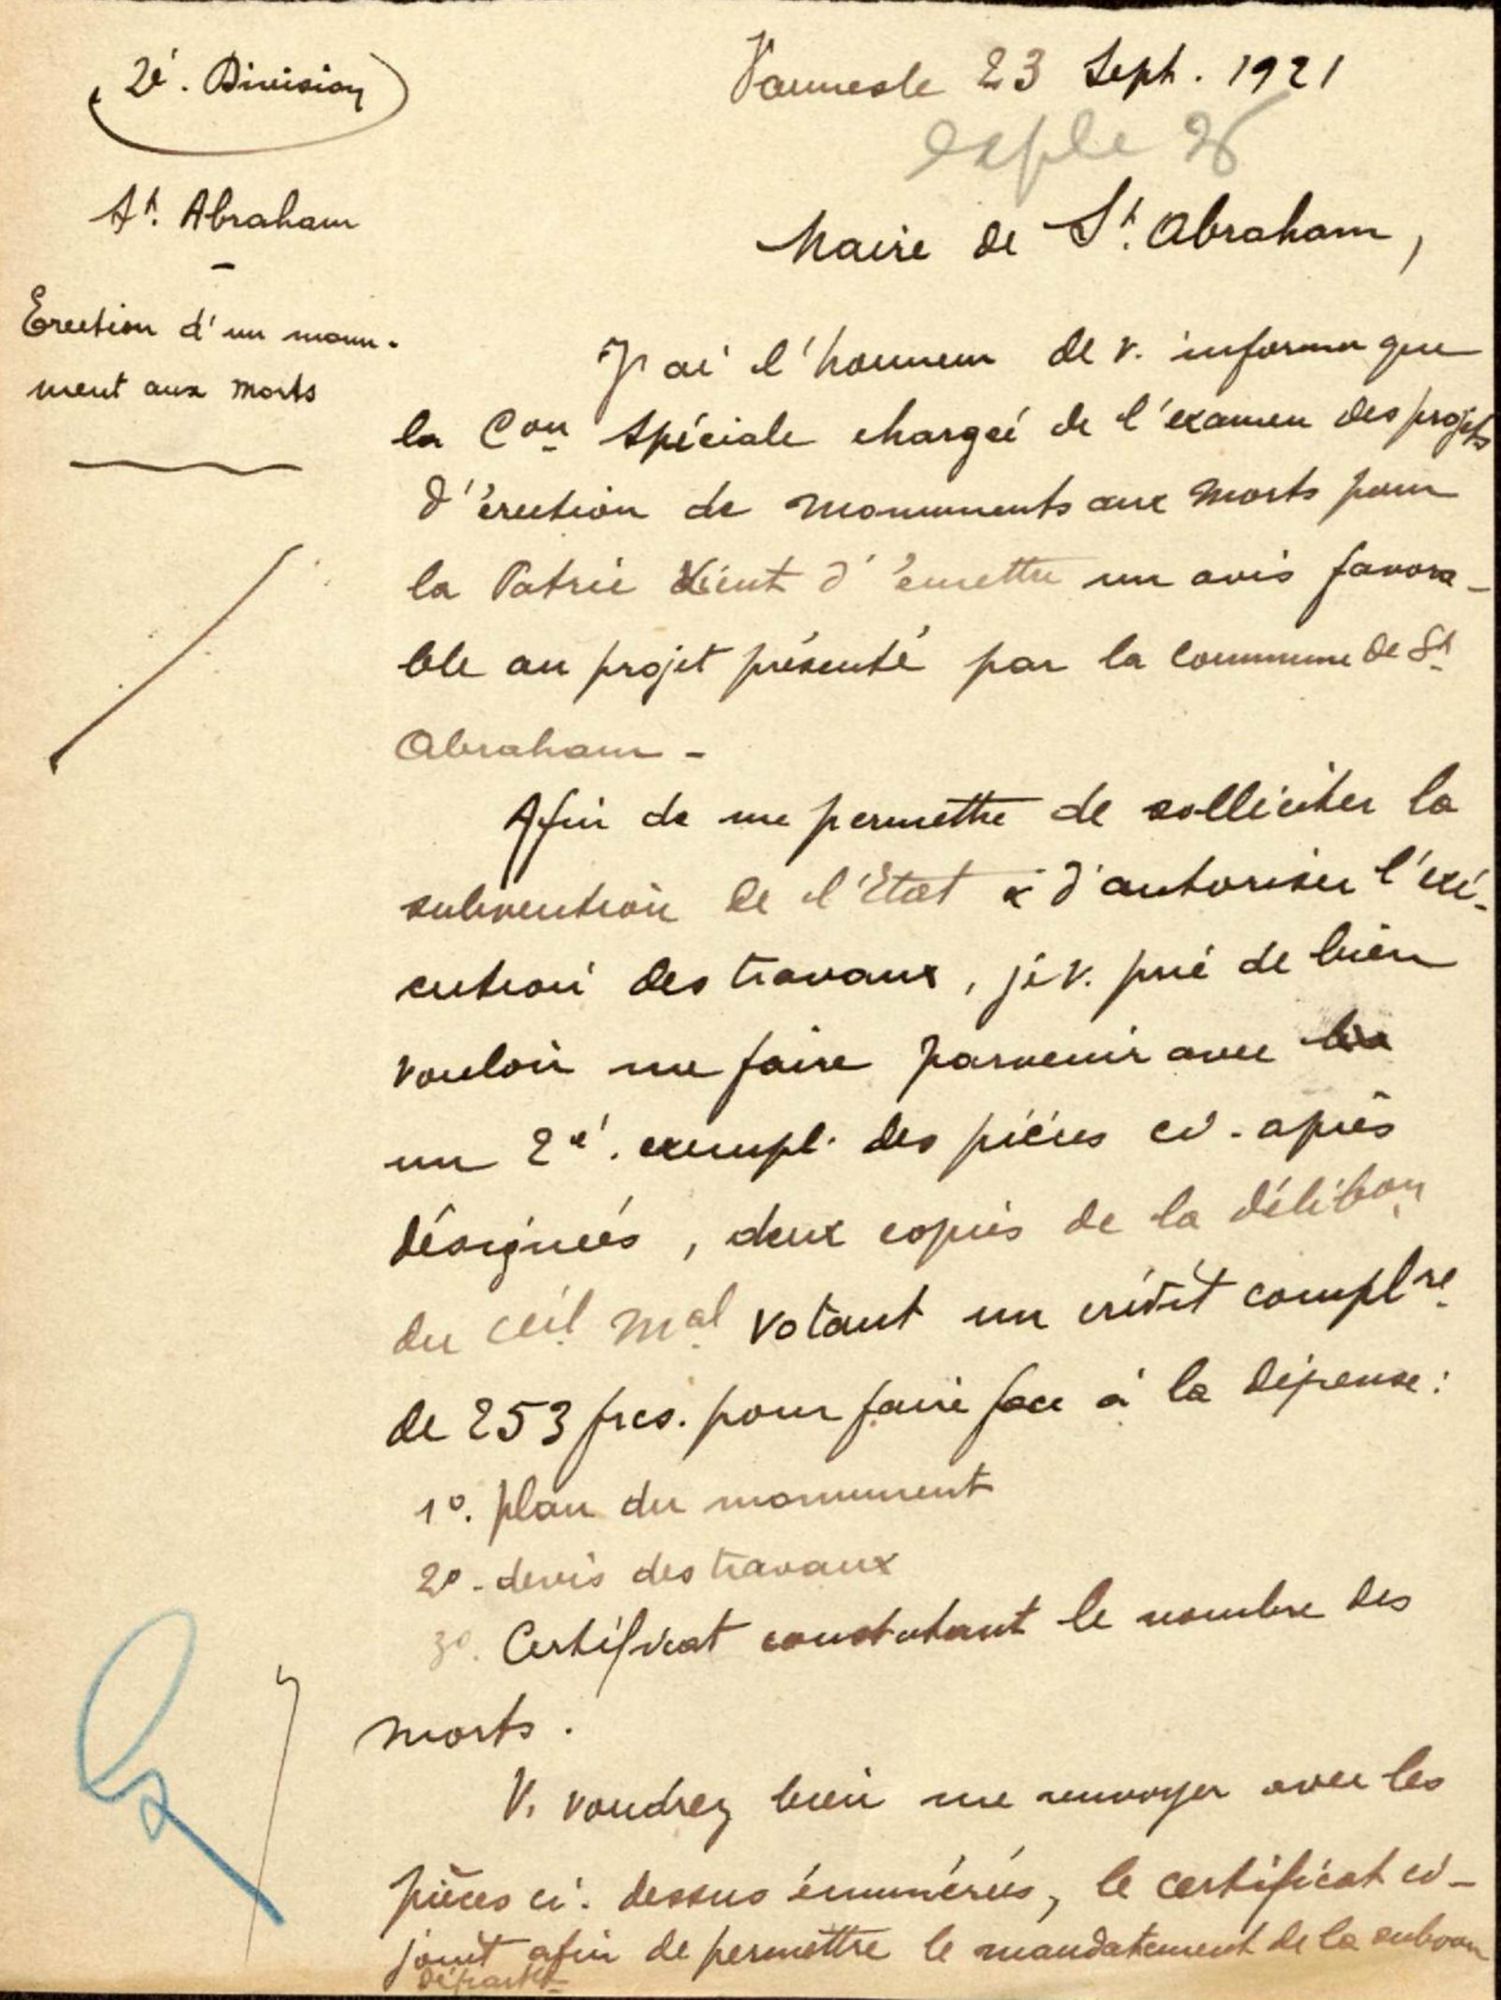 2e. Division
Vannes le 23 Sept. 1921
St. Abraham
Maire de St. Abraham,
Erection d'un monu-
ment aux morts
J'ai l'honneur de v. informer que
la Con Spéciale chargée de l'examen des projets
d'érection de monuments aux morts pour
la Patrie vient d'émettre un avis favora-
ble au projet présenté par la commune de St
Abraham -
Afin de me permettre de solliciter la
subvention de l'Etat & d'autoriser l'exé-
cution des travaux, je v. prie de bien
vouloir me faire parvenir avec
un 2e. exempl. des pièces ci-après
désignées, deux copies de la délibon
du ceil mal votant un crédit complre
de 253 frcs. pour faire face à la dépense:
1o. plan du monument
2o - devis des travaux
3o. Certificat constatant le nombre des
morts.
V. voudrez bien me renvoyer avec les
pièces ci-dessus énumérées, le certificat ci-
joint afin de permettre le mandatement de la subvon
départle